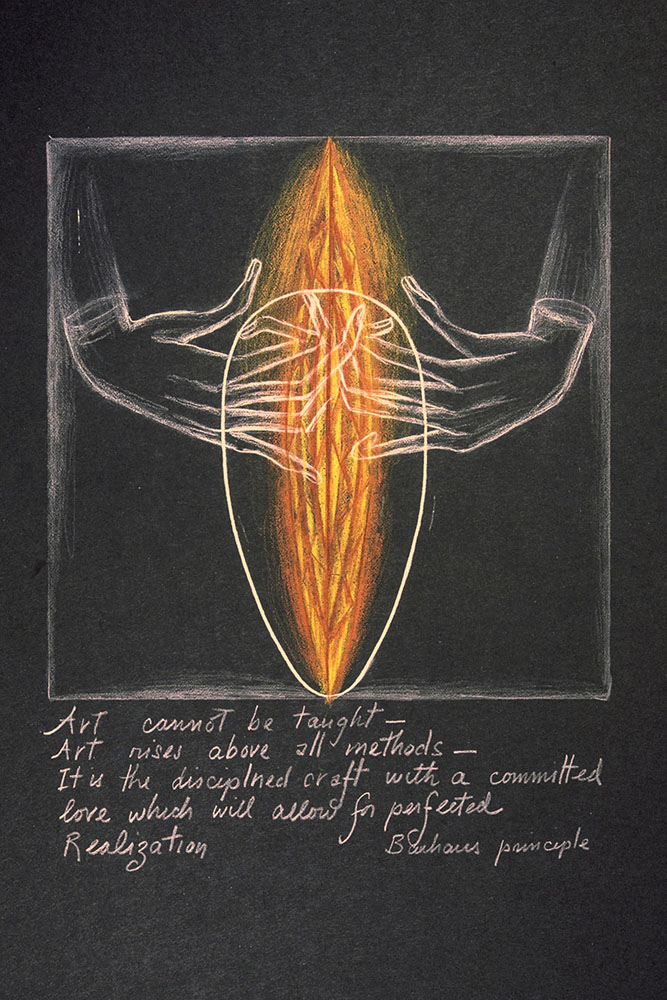 Art cannot be taught —
Art rises above all methods —
It is the disciplned craft with a committed
love which will allow for perfected
Realization Bauhaus principle